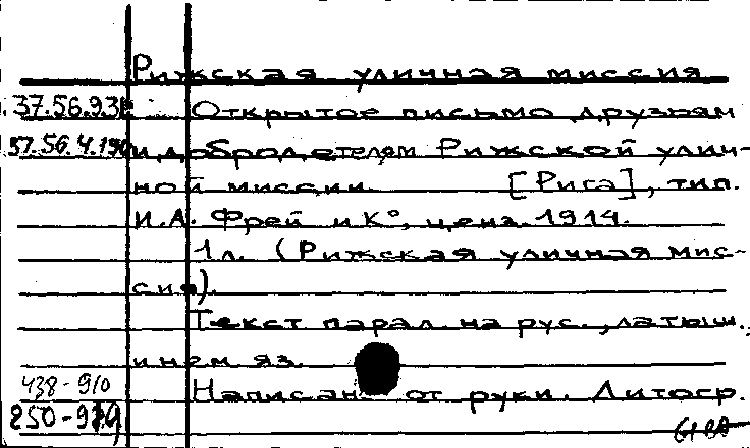 Рижская уличная миссия
37.56.93 Открытое письмо друзьям
37.56.4.190 и добродетелям Рижской улич-
ной миссии. [Рига], тип.
И.А. Фрей и К°, ценз. 1914.
1 л. (Рижская уличная мис-
сия).
Текст парал. на рус., латыш.
и нем яз.
438-910 Написан от руки. Литогр.
250-979